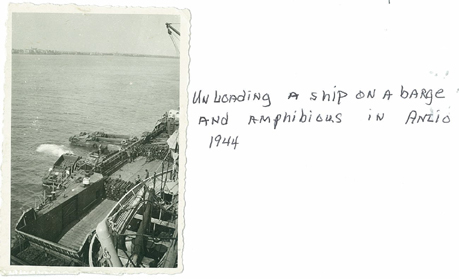 UNLOADING A ship ON A barge
AND AMPhibiOUS iN ANZiO
1944